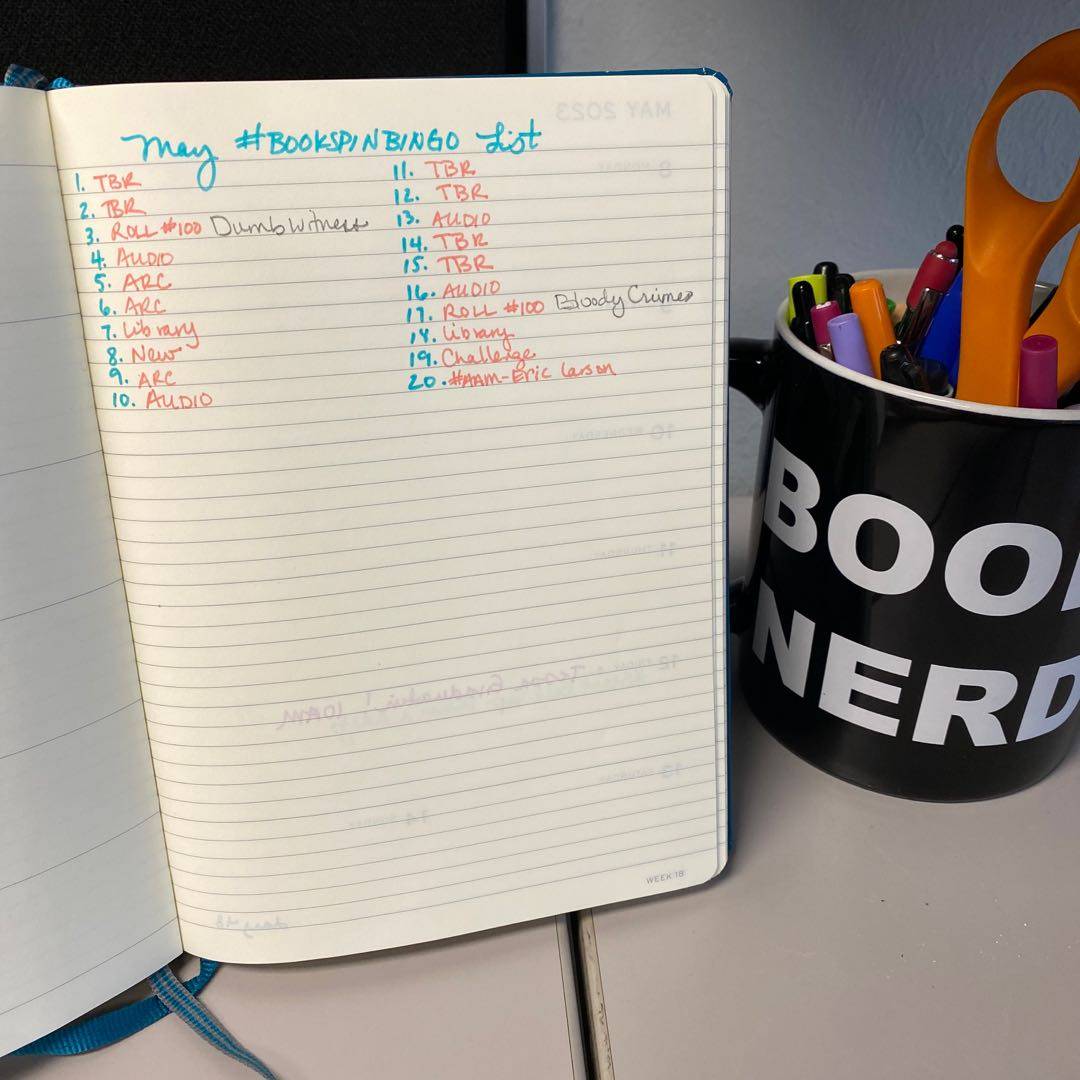 May #BOOKSPINBINGO List
1. TBR
2. TBR
3. ROLL #100 Dumb Witness
4. AUDIO
5. ARC
6. ARC
7. Library
8. New
9. ARC
10. AUDIO
11. TBR
12. TBR
13. AUDIO
14. TBR
15. TBR
16. AUDIO
17. ROLL #100 Bloody Crimes
18. Library
19. Challenge
20. #AAM-Eric Larson
WEEK 18
MAY 2023
10 WEDNESDAY
11 THURSDAY
12
13 SATURDAY
14 SUNDAY
BOO
NERD